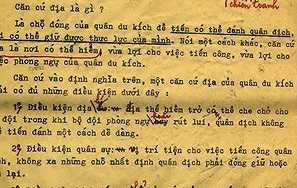 chiến tranh
Căn cứ địa là gì ?
Là chỗ đóng của quân du kích để tiến có thể đánh quân địch,
có thể giữ được thực lực của mình. Nói một cách khác, căn cứ
là nơi có thể hiểm, vừa lợi cho việc tiến công, vừa lợi cho
việc phòng ngự của quân du kích.
Căn cứ vào định nghĩa trên, một căn cứ địa của quân du kích
có đủ những điều kiện dưới đây :
1, Điều kiện địa địa thế hiểm trở có thể che chở cho
đội trong khi bộ đội phòng ngự rút lui, quân địch không
tiến đánh một cách dễ dàng.
2, Điều kiện quân sự: vị trí tiện cho việc tiến công quân
không xa những chỗ nhất định quân địch phải đóng giữ hoặc
lại.